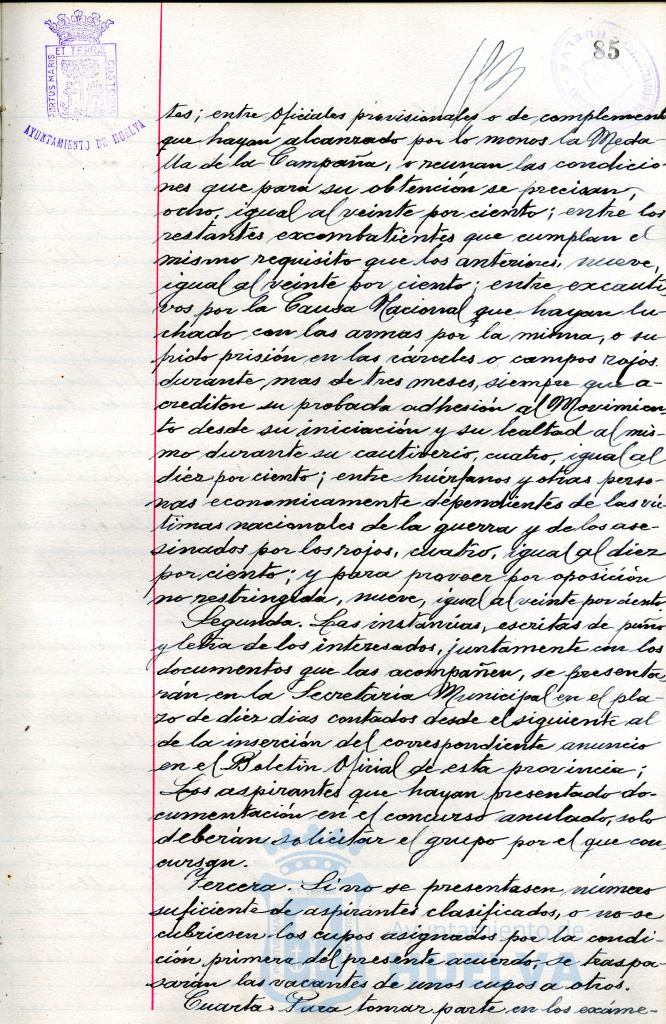 85
PORTUS MARIS ET TERRÆ CUSTODIA
AYUNTAMIENTO DE HUELVA
tes; entre oficiales provisionales o de complemento
que hayan alcanzado por lo menos la Meda-
lla de la Campaña, o reunan las condicio-
nes que para su obtención se precisan,
ocho, igual al veinte por ciento; entre los
restantes excombatientes que cumplan el
mismo requisito que los anteriores, nueve,
igual al veinte por ciento; entre excauti
vos por la Causa Nacional que hayan lu-
chado con las armas por la misma, o su
frido prisión en las cárceles o campos rojos
durante mas de tres meses, siempre que a-
crediten su probada adhesión al Movimien
to desde su iniciación y su lealtad al mis-
mo durante su cautiverio, cuatro, igual al
diez por ciento; entre huérfanos y otras perso-
nas economicamente dependientes de las víc
timas nacionales de la guerra y de los ase-
sinados por los rojos, cuatro, igual al diez
por ciento; y para proveer por oposición
no restringida, nueve, igual al veinte por ciento
Segunda. Las instancias, escritas de puño
y letra de los interesados, juntamente con los
documentos que las acompañen, se presenta
rán en la Secretaria Municipal en el pla-
zo de diez dias contados desde el siguiente al
de la inserción del correspondiente anuncio
en el Boletin Oficial de esta provincia;
Los aspirantes que hayan presentado do-
cumentación en el concurso anulado, solo
deberán solicitar el grupo por el que con
cursan.
Tercera. Si no se presentasen número
suficiente de aspirantes clasificados, o no se
cubriesen los cupos asignados por la condi
ción primera del presente acuerdo, se traspa-
sarán las vacantes de unos cupos a otros.
Cuarta. Para tomar parte en los exáme-
Ayuntamiento de
HUELVA